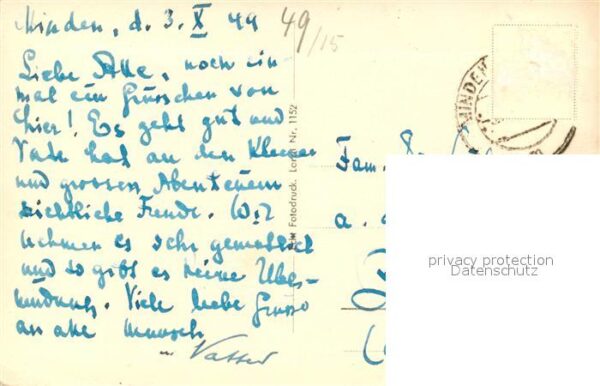 Minden, d. 3. X 49
49/15
Liebe Alle, noch ein-
mal ein Grüsschen von
hier! Es geht gut und
Vater hat an den kleinen
und grossen Abenteuern
sichtliche Freude. Wir
nehmen es sehr gemütlich
und so gibt es keine Über-
Viele liebe Grüsse
an alle
Vatter
Fotodruck. Nr. 1152
MINDEN
Fam.
a.
privacy protection
Datenschutz